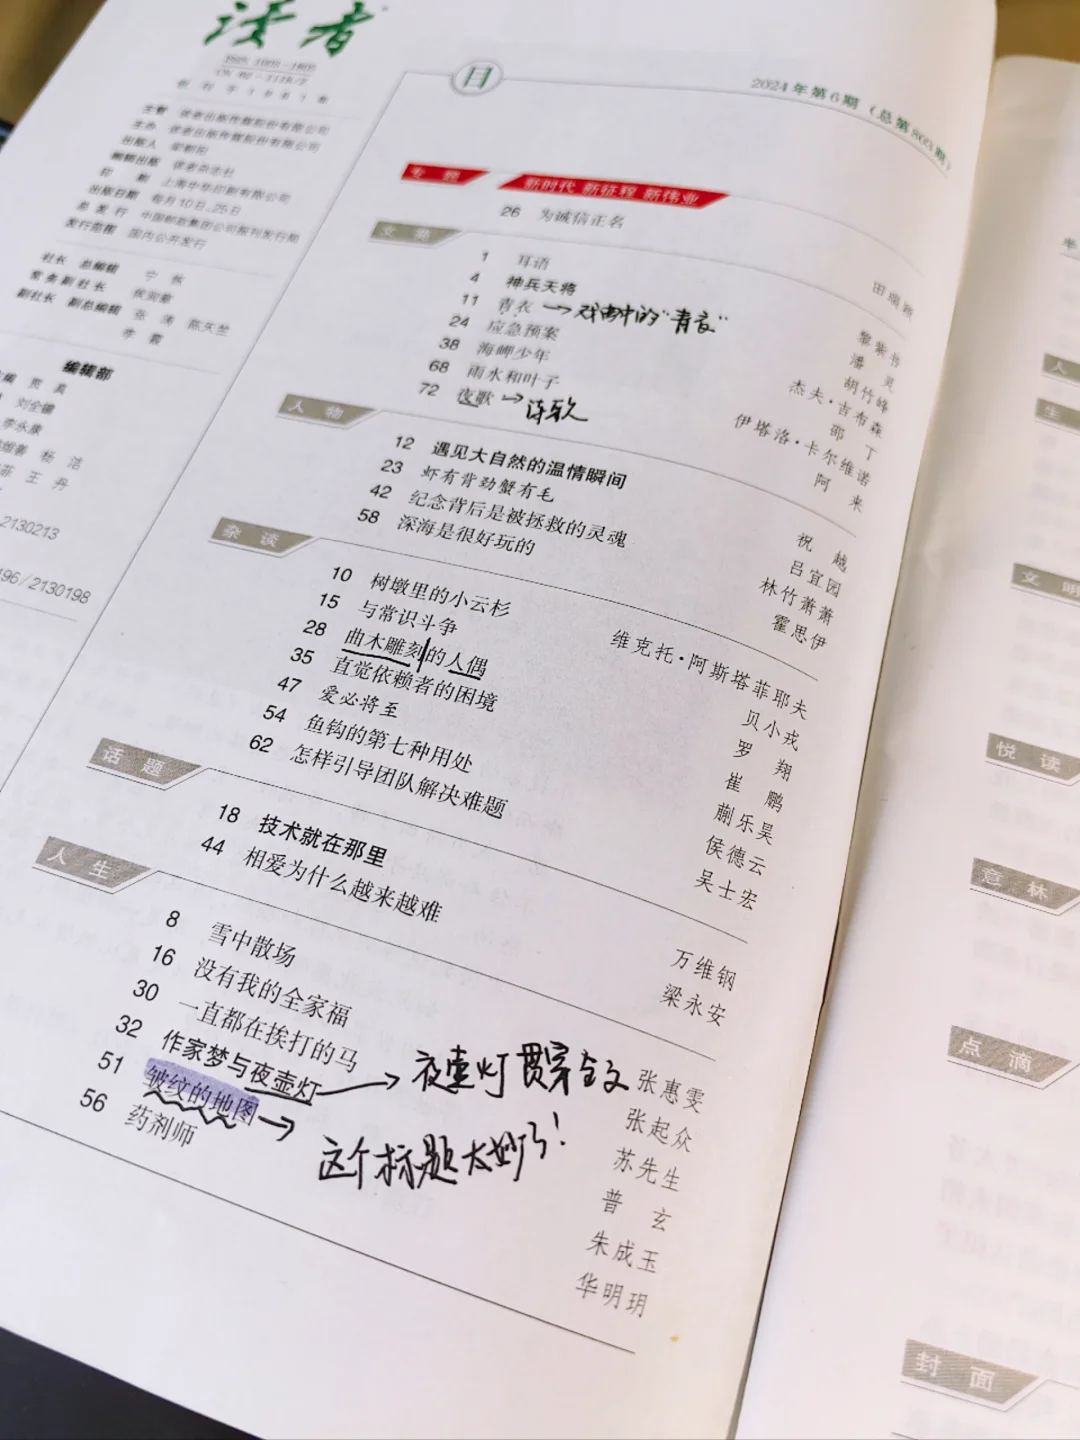 读者
创刊于1981年
主管 读者出版传媒股份有限公司
主办 读者出版传媒股份有限公司
出版人
编辑出版 读者杂志社
印刷 上海中华印刷有限公司
出版日期 每月10日、25日
总发行 中国邮政集团公司报刊发行局
发行范围 国内公开发行
社长 总编辑 宁
常务副社长
副社长 副总编辑 张 涛 陈天竺
李 霞
编辑部
李永康
杨
王 丹
2130213
196/2130198
目
2024年第6期（总第803期）
专题 新时代 新征程 新伟业
26 为诚信正名
文苑
1 耳语
4 神兵天将
11 青衣 → 戏曲中的“青衣”
24 应急预案
38 海岬少年
68 雨水和叶子
72 夜歌 → 诗歌
黎紫书
潘 灵
胡竹峰
杰夫·吉布森
邵 丁
伊塔洛·卡尔维诺
阿 来
人物
12 遇见大自然的温情瞬间
23 虾有背劲蟹有毛
42 纪念背后是被拯救的灵魂
58 深海是很好玩的
祝 越
吕宜园
林竹萧萧
霍思伊
杂读
10 树墩里的小云杉
15 与常识斗争
28 曲木雕刻的人偶
35 直觉依赖者的困境
47 爱必将至
54 鱼钩的第七种用处
62 怎样引导团队解决难题
维克托·阿斯塔菲耶夫
贝小戎
罗 翔
崔 鹏
蒯乐昊
侯德云
吴士宏
话题
18 技术就在那里
44 相爱为什么越来越难
万维钢
梁永安
人生
8 雪中散场
16 没有我的全家福
30 一直都在挨打的马
32 作家梦与夜壶灯 → 夜壶灯贯穿全文
51 皱纹的地图 → 这个标题太妙了！
56 药剂师
张惠雯
张起众
苏先生
普 玄
朱成玉
华明玥
人
生
文明
悦读
意林
点滴
封面